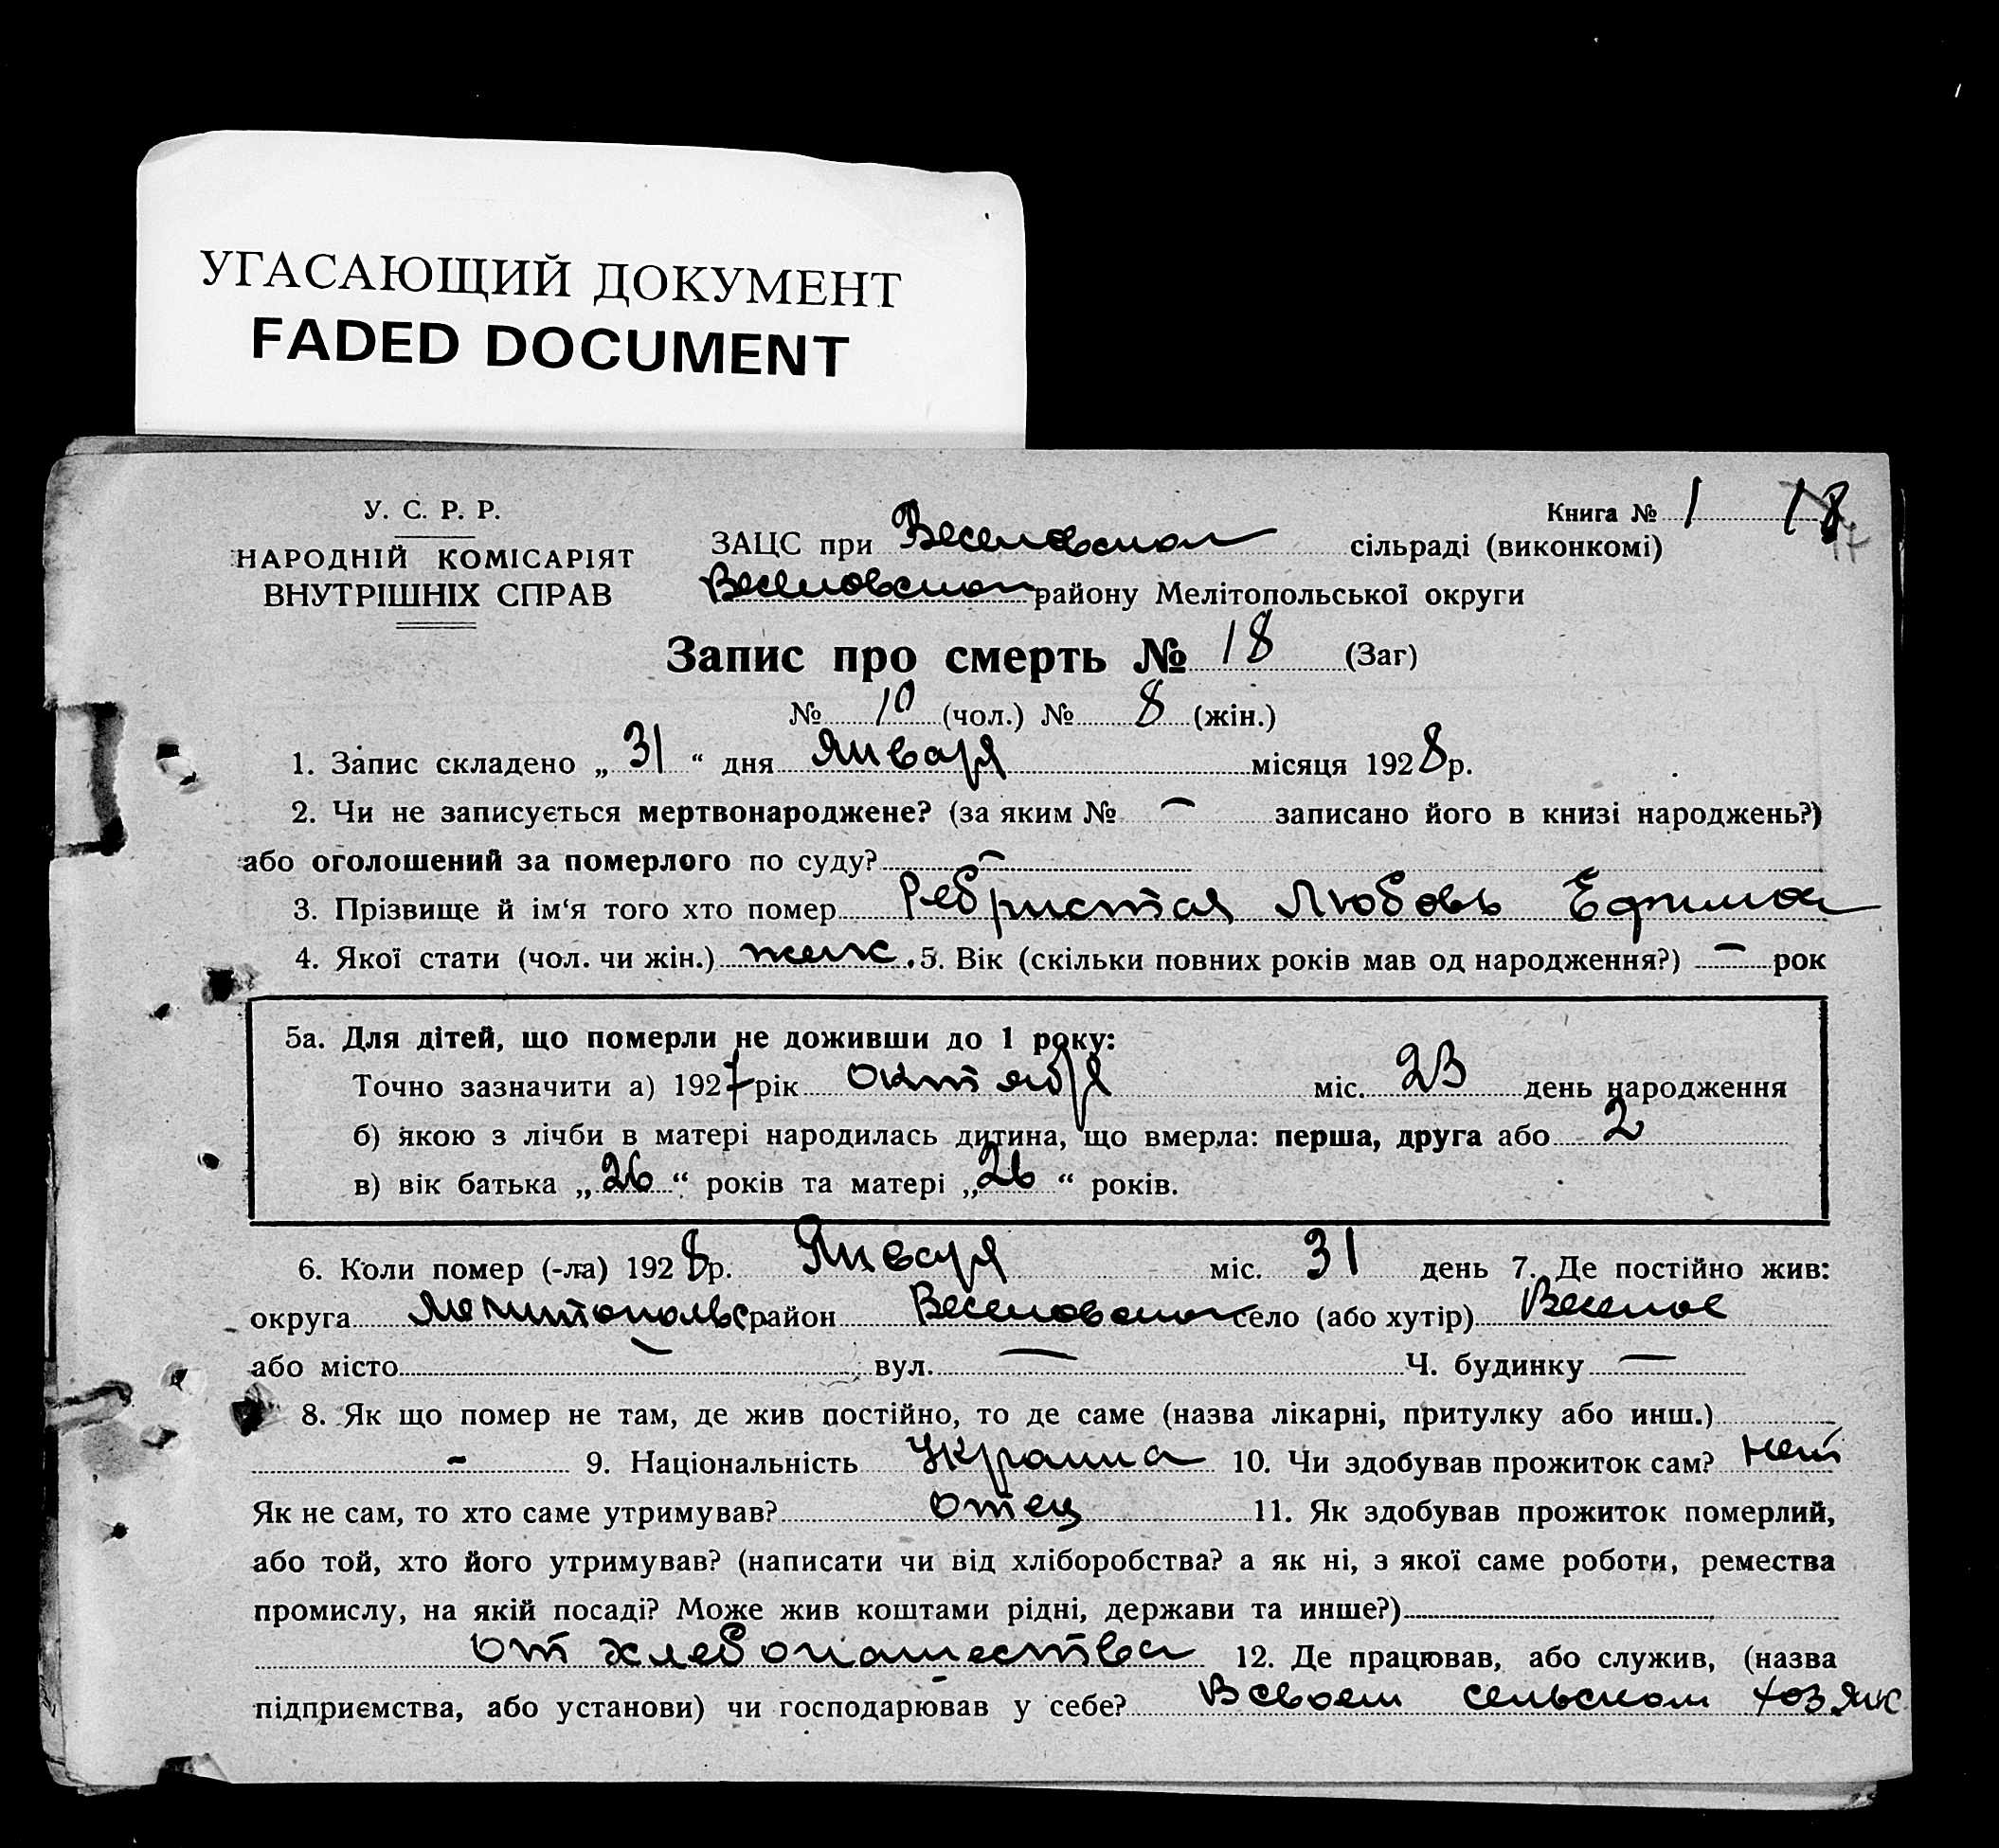 УГАСАЮЩИЙ ДОКУМЕНТ
FADED DOCUMENT
У. С. Р. Р.
НАРОДНІЙ КОМІСАРІЯТ
ВНУТРІШНІХ СПРАВ
Книга № 1 18
ЗАЦС при Веселовском сільраді (виконкомі)
Веселовском району Мелітопольської округи
Запис про смерть № 18 (Заг)
№ 10 (чол.) № 8 (жін.)
1. Запис складено „ 31 “ дня Января місяця 1928 р.
2. Чи не записується мертвонароджене? (за яким № — записано його в книзі народжень?)
або оголошений за померлого по суду? —
3. Прізвище й ім‘я того хто помер Ребристая Любовь Ефимов
4. Якої стати (чол. чи жін.) женск. 5. Вік (скільки повних років мав од народження?) — рок
5а. Для дітей, що померли не доживши до 1 року:
Точно зазначити а) 1927 рік октября міс. 23 день народження
б) якою з лічби в матері народилась дитина, що вмерла: перша, друга або 2
в) вік батька „ 26 “ років та матері „ 26 “ років.
6. Коли помер (-ла) 1928 р. Января міс. 31 день 7. Де постійно жив:
округа Мелитопольс район Веселовском село (або хутір) Веселое
або місто — вул. — Ч. будинку —
8. Як що помер не там, де жив постійно, то де саме (назва лікарні, притулку або инш.)
- 9. Національність Украинка 10. Чи здобував прожиток сам? нет
Як не сам, то хто саме утримував? отец 11. Як здобував прожиток померлий,
або той, хто його утримував? (написати чи від хліборобства? а як ні, з якої саме роботи, ремества
промислу, на якій посаді? Може жив коштами рідні, держави та инше?)
от хлебопашества 12. Де працював, або служив, (назва
підприємства, або установи) чи господарював у себе? В своем сельском хозяйс